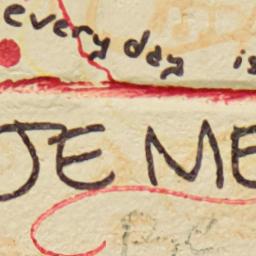 everyday is
JE ME